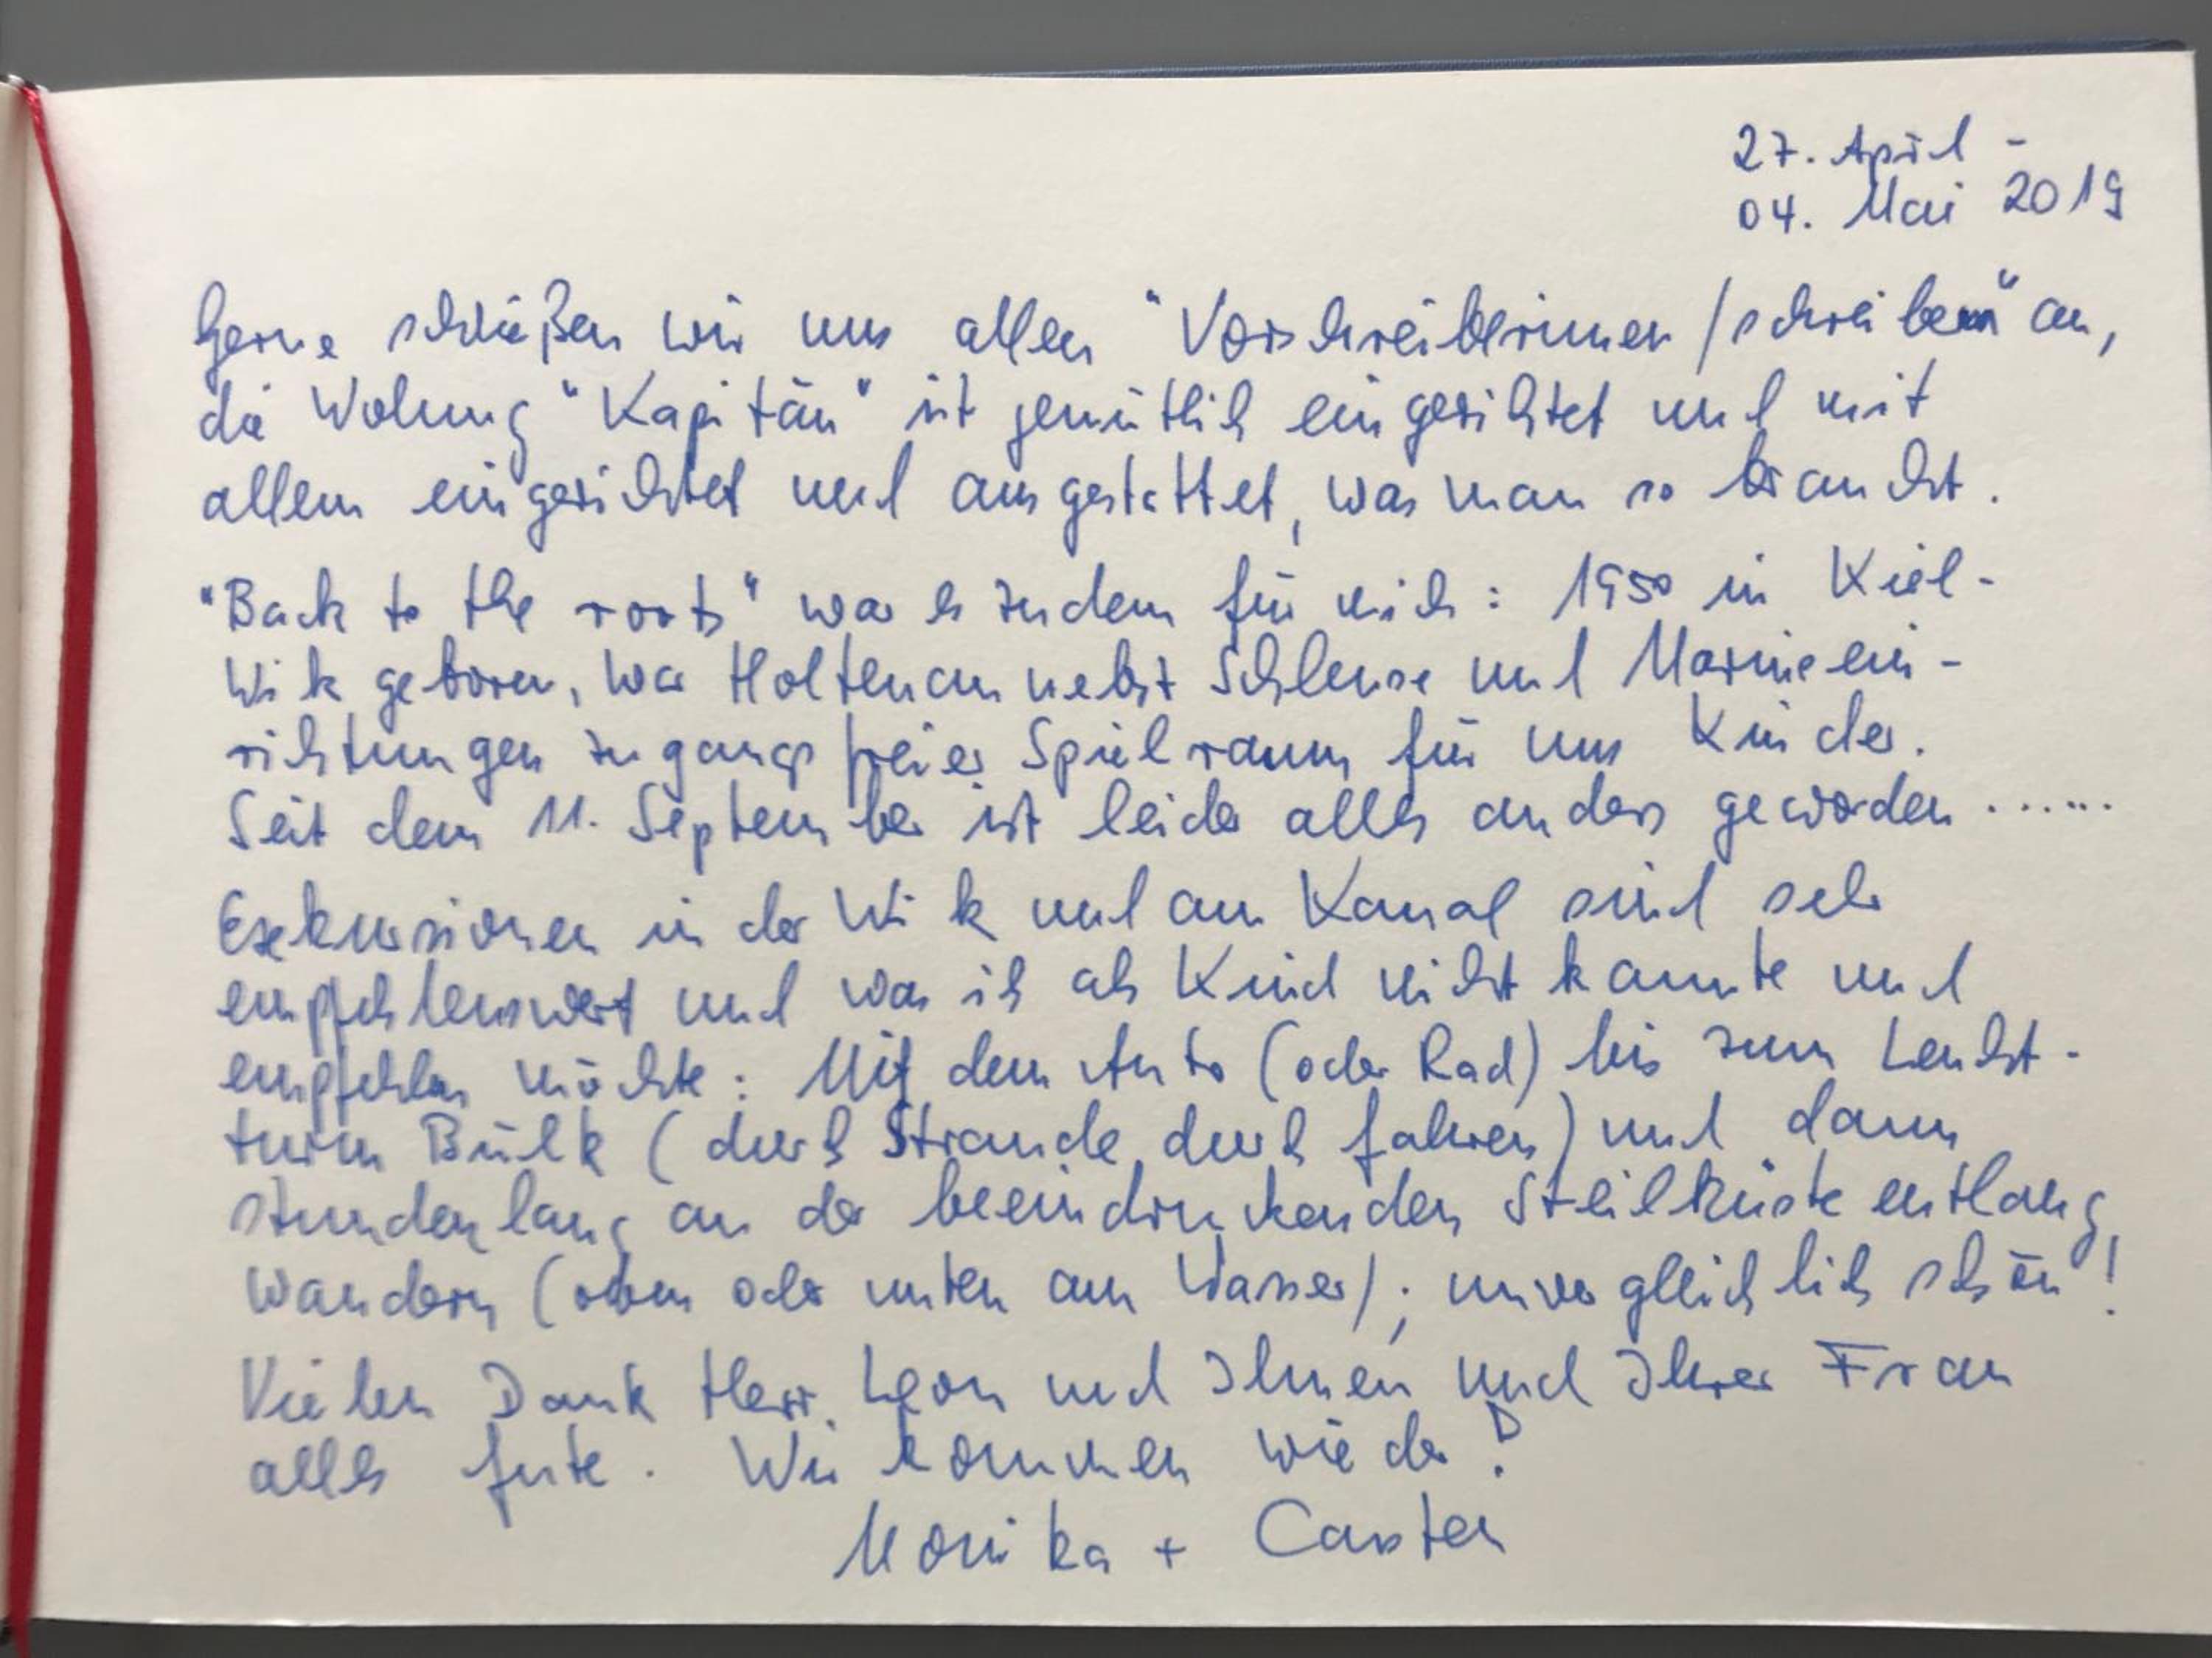 27. April -
04. Mai 2019
Gerne schließen wir uns allen "Vorschreiberinnen/schreibern" an,
die Wohnung "Kapitän" ist gemütlich eingerichtet und mit
allem eingerichtet und ausgestattet, was man so braucht.
"Back to the roots" war es zudem für mich: 1950 in Kiel-
Wik geboren, war Holtenau nebst Schleuse und Marineein-
richtungen zugangsfreier Spielraum für uns Kinder.
Seit dem 11. September ist leider alles anders geworden ......
Exkursionen in der Wik und am Kanal sind sehr
empfehlenswert und was ich als Kind nicht kannte und
empfehlen möchte: Mit dem Auto (oder Rad) bis zum Leucht-
turm Bülk (durch Strande durch fahren) und dann
stundenlang an der beeindruckenden Steilküste entlang
wandern (oben oder unten am Wasser); unvergleichlich schön!
Vielen Dank Herr Leon und Ihnen und Ihrer Frau
alles Gute. Wir kommen wieder!
Monika + Carsten